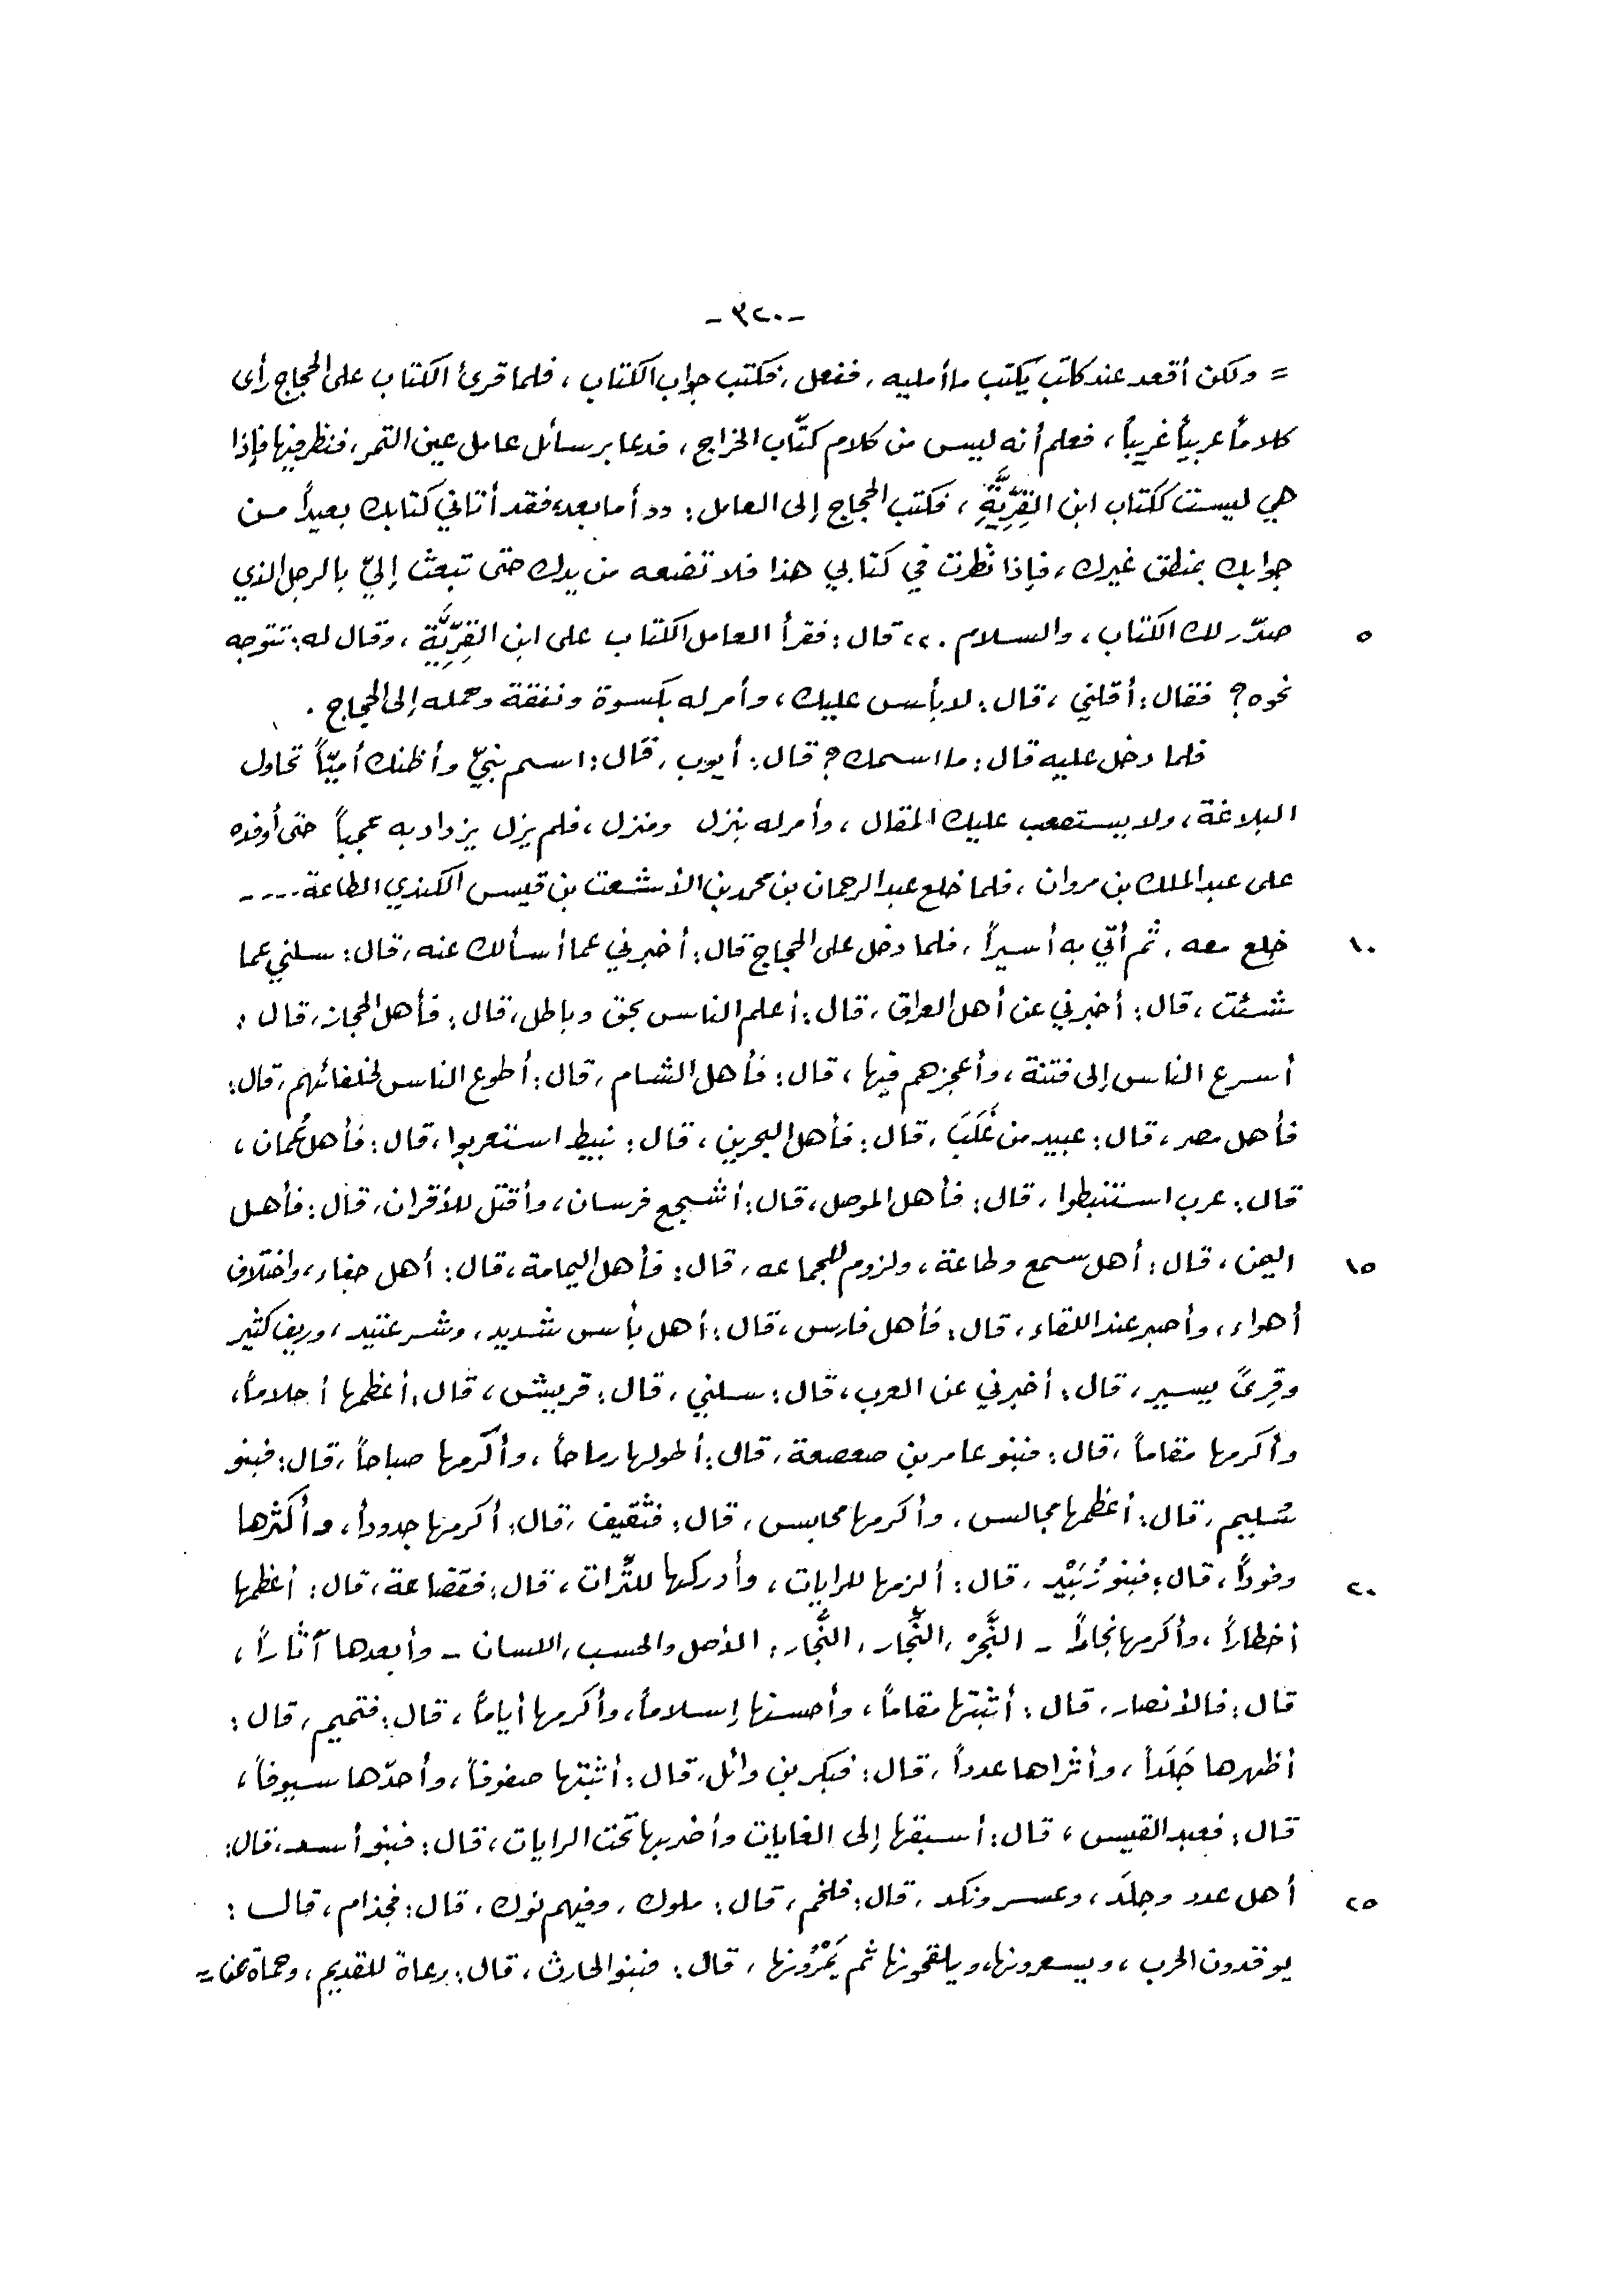 -٣٢٠-
= ولكن أقعد عند كاتب يكتب ما أمليه، ففعل، فكتب جواب الكتاب، فلما قرئ الكتاب على الحجاج رأى
كلاماً عربياً غريباً، فعلم أنه ليس من كلام كتّاب الخراج، فدعا برسائل عامل عين التمر، فنظر فيها فإذا
هي ليست ككتاب ابن القِرِّيَّةِ، فكتب الحجاج إلى العامل: ,, أما بعد، فقد أتاني كتابك بعيداً من
جوابك بمنطق غيرك، فإذا نظرت في كتابي هذا فلا تضعه من يدك حتى تبعث إليّ بالرجل الذي
٥ صدّر لك الكتاب، والسلام .،، قال: فقرأ العامل الكتاب على ابن القِرِّيَّةِ، وقال له: تتوجه
نحوه؟ فقال: أقلني، قال: لا بأس عليك، وأمر له بكسوة ونفقة وحمله إلى الحجاج .
فلما دخل عليه قال: ما اسمك؟ قال: أيوب، قال: اسم نبيّ وأظنك أميّاً تحاول
البلاغة، ولا يستصعب عليك المقال، وأمر له بنزل ومنزل، فلم يزل يزداد به عجباً حتى أوفده
على عبد الملك بن مروان، فلما خلع عبد الرحمان بن محمد بن الأشعث بن قيس الكندي الطاعة ....
١٠ خلع معه، ثم أتي به أسيراً، فلما دخل على الحجاج قال: أخبرني عما أسألك عنه، قال: سلني عما
شئت، قال: أخبرني عن أهل العراق، قال: أعلم الناس بحق وباطل، قال: فأهل الحجاز، قال:
أسرع الناس إلى فتنة، وأعجزهم فيها، قال: فأهل الشام، قال: أطوع الناس لخلفائهم، قال:
فأهل مصر، قال: عبيد من غَلَبَ، قال: فأهل البحرين، قال: نبيط استعربوا، قال: فأهل عُمان،
قال: عرب استنبطوا، قال: فأهل الموصل، قال: أشجع فرسان، وأقتل للأقران، قال: فأهل
١٥ اليمن، قال: أهل سمع وطاعة، ولزوم للجماعه، قال: فأهل اليمامة، قال: أهل جفاء، واختلاف
أهواء، وأصبر عند اللقاء، قال: فأهل فارس، قال: أهل بأس شديد، وشر عتيد، وريف كثير
وقِرىً يسير، قال: أخبرني عن العرب، قال: سلني، قال: قريش، قال: أعظمها أحلاماً،
وأكرمها مقاماً، قال: فبنو عامر بن صعصعة، قال: أطولها رماحاً، وأكرمها صباحاً، قال: فبنو
سُليم، قال: أعظمها مجالس، وأكرمها محابس، قال: فثقيف، قال: أكرمها جدوداً، وأكثرها
٢٠ وفوداً، قال: فبنو زُبَيْد، قال: ألزمها للرايات، وأدركها للتِّرات، قال: فقضاعة، قال: أعظمها
أخطاراً، وأكرمها نجاراً - النَّجْرُ، النِّجَار، النُّجَار: الأصل والحسب، اللسان - وأبعدها آثاراً،
قال: فالأنصار، قال: أثبتها مقاماً، وأحسنها إسلاماً، وأكرمها أياماً، قال: فتميم، قال:
أظهرها جَلَداً، وأثراها عدداً، قال: فبكر بن وائل، قال: أثبتها صفوفاً، وأحدّها سيوفاً،
قال: فعبد القيس، قال: أسبقها إلى الغايات وأضربها تحت الرايات، قال: فبنو أسد، قال:
٢٥ أهل عدد وجلَد، وعسر ونكد، قال: فلخم، قال: ملوك، وفيهم نوك، قال: فجذام، قال:
يوقدون الحرب، ويسعرونها، ويلقحونها ثم يَمْرُونها، قال: فبنو الحارث، قال: رعاة للقديم، وحماة عن =